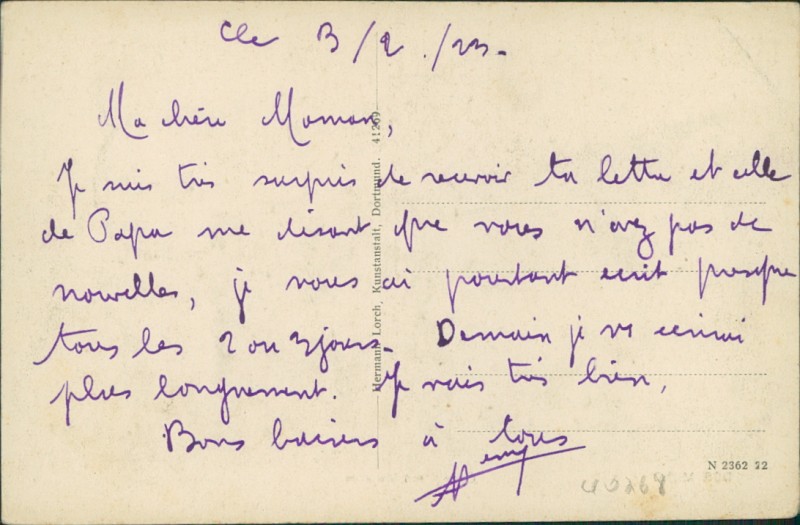 Cle 3/2./23.
Ma chère Maman,
Je suis très surpris de recevoir ta lettre et celle
de Papa me disant que vous n'avez pas de
nouvelles, je vous ai pourtant ecrit presque
tous les 2 ou 3 jours. Demain je vs ecrirai
plus longuement. Je vais très bien,
Bons baisers à tous
Hermann Lorch, Kunstanstalt, Dortmund. 41269
N 2362 22